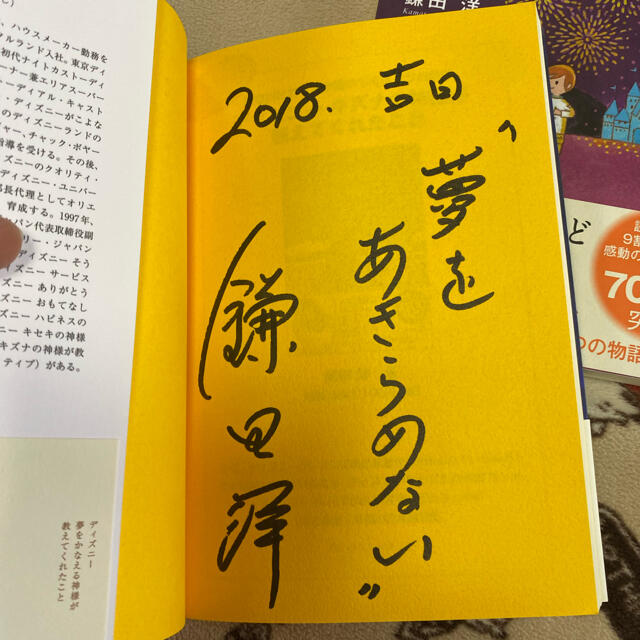 2018. 吉日
"夢を
あきらめない"
鎌田洋
、ハウスメーカー勤務を
ルランド入社。東京ディ
初代ナイトカストーディ
ーナー兼エリアスーパー
ーディアル・キャスト
・ディズニーがこよな
のディズニーランドの
ャー、チャック・ボヤー
指導を受ける。その後、
ズニーのクオリティ・
ディズニー・ユニバー
部長代理としてオリエ
育成する。1997年、
イン代表取締役副
リー・ジャパン
ディズニー そう
ズニー サービス
ィズニー ありがとう
ズニー おもてなし
ズニー ハピネスの
ニー キセキの神様
キズナの神様が教
ィブ)がある。
ディズニー
夢をかなえる神様が
教えてくれたこと
鎌田 洋
ど
9割
感動の
70
つの物語